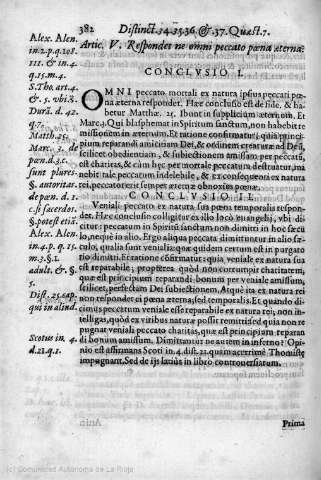 382 Distinct. 34.35.36. & 37. Quæst. 7.
Artic. V. Respondet ne omni peccato pœna æterna?
CONCLVSIO I.
OMNI peccato mortali ex natura ipsius peccati pœ-
na æterna respondet. Hæc conclusio est de fide, & ha-
betur Matthæ. 25. Ibunt in supplicium æternum. Et
Marc. 3. Qui blasphemat in Spiritum sanctum, non habebit re
missionem in æternum. Et ratione confirmatur; quia princi-
pium reparandi amicitiam Dei, & ordinem creaturæ ad Deũ,
scilicet obedientiam, & subiectionem amissam per peccatũ,
est charitas, & cùm hęc per mortale peccatum destruatur, ma
nebit tale peccatum indelebile, & ex consequenti ex natura
rei, peccator erit semper æternæ obnoxius pœnæ.
CONCLVSIO II.
Veniali peccato ex natura sua pœna temporalis respon-
det. Hæc conclusio colligitur ex illo loco euangelij, vbi di-
citur: peccatum in Spiritũ sanctum non dimitti in hoc sæcu
lo, neque in alio. Ergo aliqua peccata dimittuntur in alio sæ-
culo, qualia sunt venialia: quæ quidem certum est in purga-
torio dimitti. Et ratione confirmatur: quia veniale ex natura sua
est reparabile; propterea quòd non corrumpit charitatem,
quæ est principium reparandi bonum per veniale amissum,
scilicet, perfectam Dei subiectionem. Atque ita ex natura rei
non respondet ei pœna æterna, sed temporalis. Et quando di-
cimus peccatum veniale esse reparabile ex natura rei; non in-
telligas, quòd ex viribus naturæ possit remitti sed quia non re
pugnat veniali peccato charitas, quæ est principium reparan
di bonum amissum. Dimittantur ne autem in inferno? Opi-
nio est affirmans Scoti in 4. dist. 21. quam acerrimè Thomistę
impugnant. Sed de ijs latiùs in libro controuersiarum.
Prima
Alex. Alen.
in 2. p. q. 108.
m.
4. &
q. 15. m. 4.
S. Tho. art. 4
& 5. vbi 3.
Durã. d. 42.
q. 7.
Matth. 25.
Marc. 3. de
pœn. d. 3. c.
sunt plures.
§. autoritas.
de pœn. d. 1.
c. si sacerdos.
§. potest etiã.
Alex. Alen.
in 4. p. q. 15.
m. 3. §. 1.
adult. & §.
5.
Dist. 25.
qui in aliud.
Scotus in 4.
d. 21. q. 1.
(c) Comunidad Autónoma de La Rioja